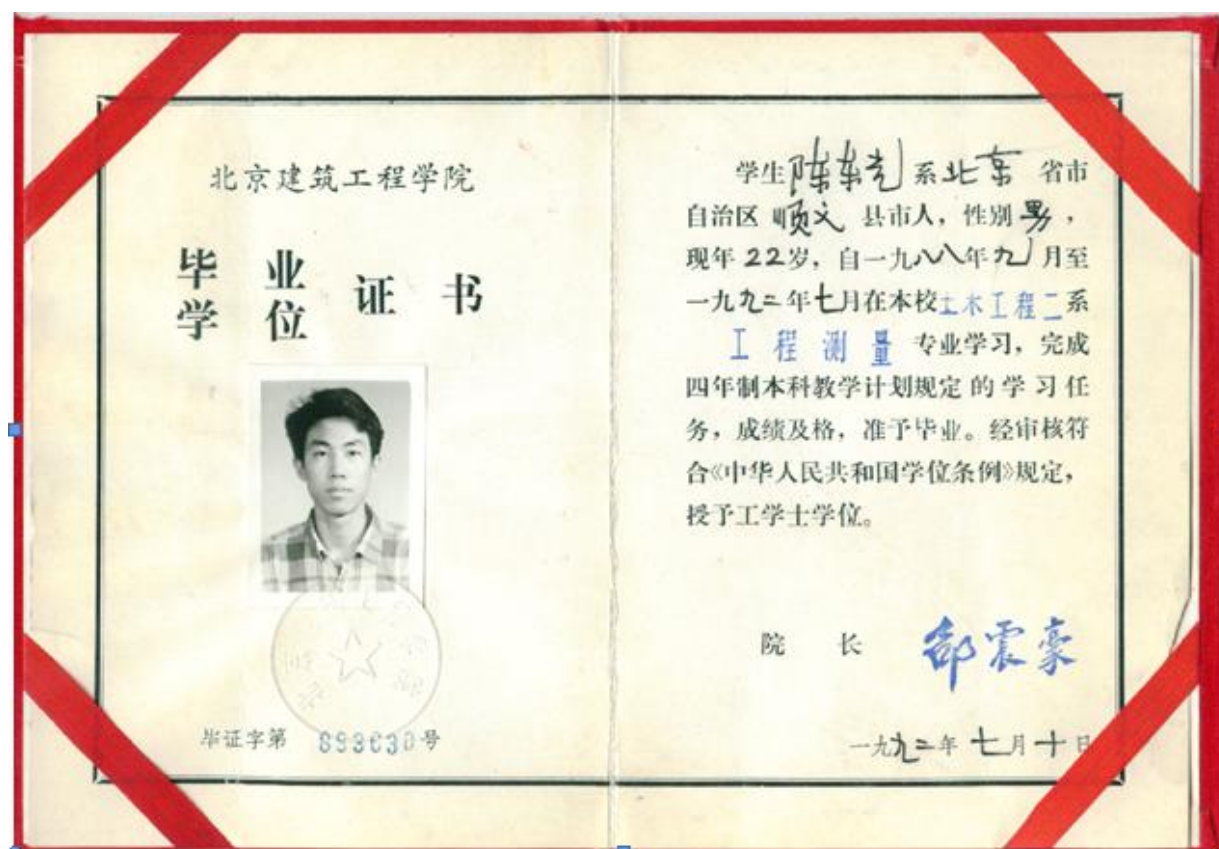 北京建筑工程学院
毕业
学位
证书
毕证字第 893630号
学生陈东光系北京省市
自治区顺义县市人，性别男，
现年22岁，自一九八八年九月至
一九九二年七月在本校土木工程二系
工程测量专业学习，完成
四年制本科教学计划规定的学习任
务，成绩及格，准予毕业。经审核符
合《中华人民共和国学位条例》规定，
授予工学士学位。
院长 郃震豪
一九九二年七月十日